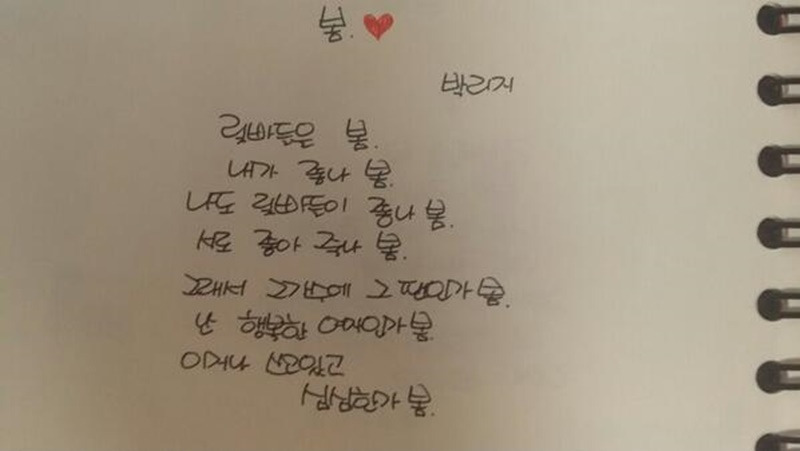 봄. ♥
박리지
럽빠들은 봄.
내가 좋나 봄.
나도 럽빠들이 좋나 봄.
서로 좋아 죽나 봄.
그래서 그가수에 그 팬인가 봄.
난 행복한 여자인가 봄.
이거나 쓰고있고
심심한가 봄.